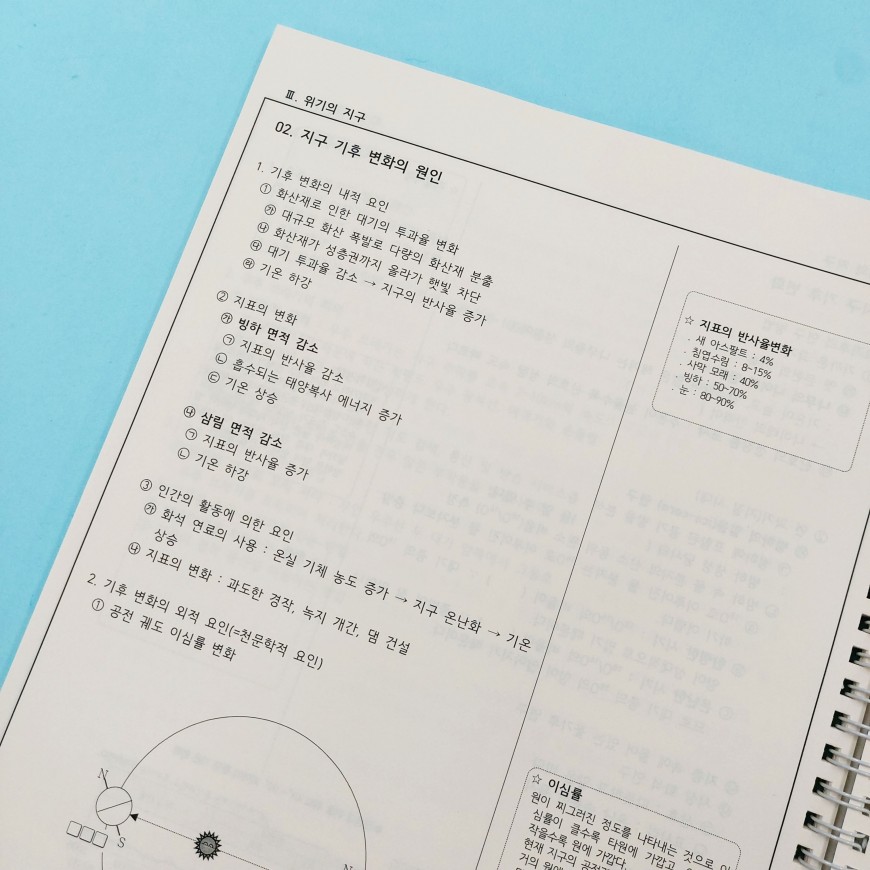 Ⅲ. 위기의 지구
02. 지구 기후 변화의 원인
1. 기후 변화의 내적 요인
① 화산재로 인한 대기의 투과율 변화
㉮ 대규모 화산 폭발로 다량의 화산재 분출
㉯ 화산재가 성층권까지 올라가 햇빛 차단
㉰ 대기 투과율 감소 → 지구의 반사율 증가
㉱ 기온 하강
② 지표의 변화
㉮ 빙하 면적 감소
㉠ 지표의 반사율 감소
㉡ 흡수되는 태양복사 에너지 증가
㉢ 기온 상승
㉯ 삼림 면적 감소
㉠ 지표의 반사율 증가
㉡ 기온 하강
③ 인간의 활동에 의한 요인
㉮ 화석 연료의 사용 : 온실 기체 농도 증가 → 지구 온난화 → 기온
상승
㉯ 지표의 변화 : 과도한 경작, 녹지 개간, 댐 건설
2. 기후 변화의 외적 요인(=천문학적 요인)
① 공전 궤도 이심률 변화
N
S
N
☆ 지표의 반사율변화
· 새 아스팔트 : 4%
· 침엽수림 : 8~15%
· 사막 모래 : 40%
· 빙하 : 50~70%
· 눈 : 80~90%
☆ 이심률
원이 찌그러진 정도를 나타내는 것으로
심률이 클수록 타원에 가깝고
작을수록 원에 가깝다.
현재 지구의
거의 원에